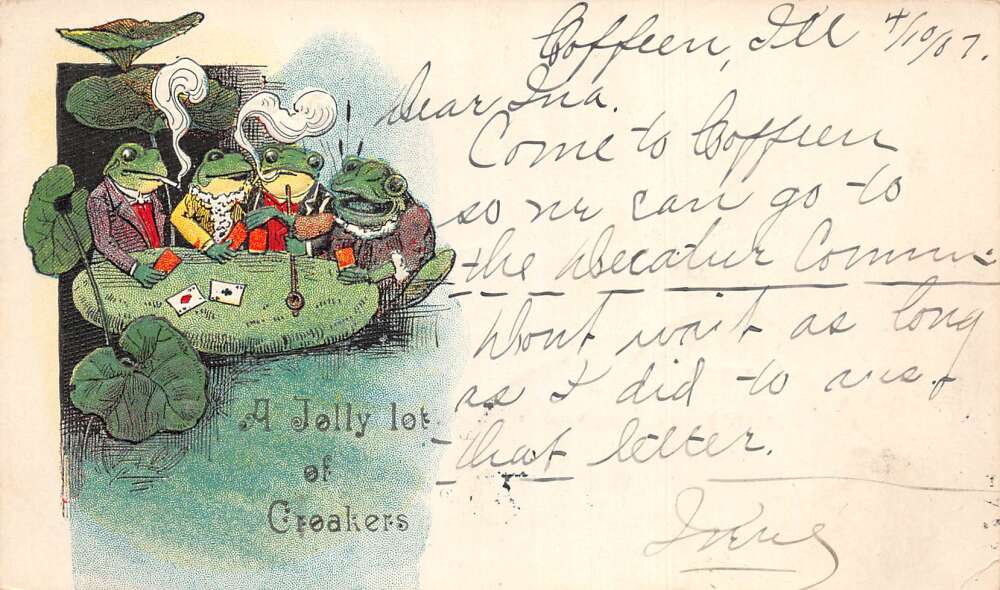 Coffeen, Ill 4/10/07.
Dear Ina.
Come to Coffeen
so we can go to
the Decatur Comm.
Dont wait as long
as I did to ans.
that letter.
Irene
A Jolly lot
of
Croakers